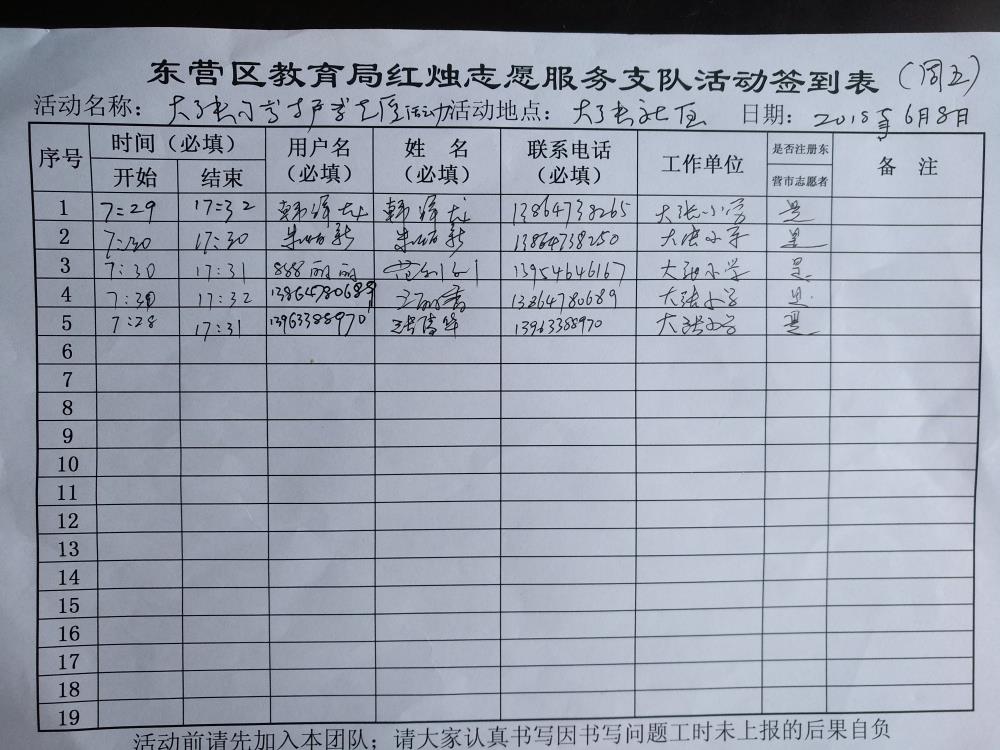 东营区教育局红烛志愿服务支队活动签到表（周五）
活动名称： 活动地点： 日期：2018年6月8日
序号 时间（必填） 用户名（必填） 姓 名（必填） 联系电话（必填） 工作单位 是否注册东营市志愿者 备 注
开始 结束
1 7:29 17:32 韩泽 韩泽 13864738265 大张小学 是
2 7:30 17:30 朱 新 朱 新 13864738250 大张小学 是
3 7:30 17:31 888丽丽 13954646167 大张小学 是
4 7:30 17:32 13864780689 13864780689 大张小学 是
5 7:28 17:31 13963388970 张 华 13963388970 大张小学 是
6
7
8
9
10
11
12
13
14
15
16
17
18
19
活动前请先加入本团队；请大家认真书写因书写问题工时未上报的后果自负